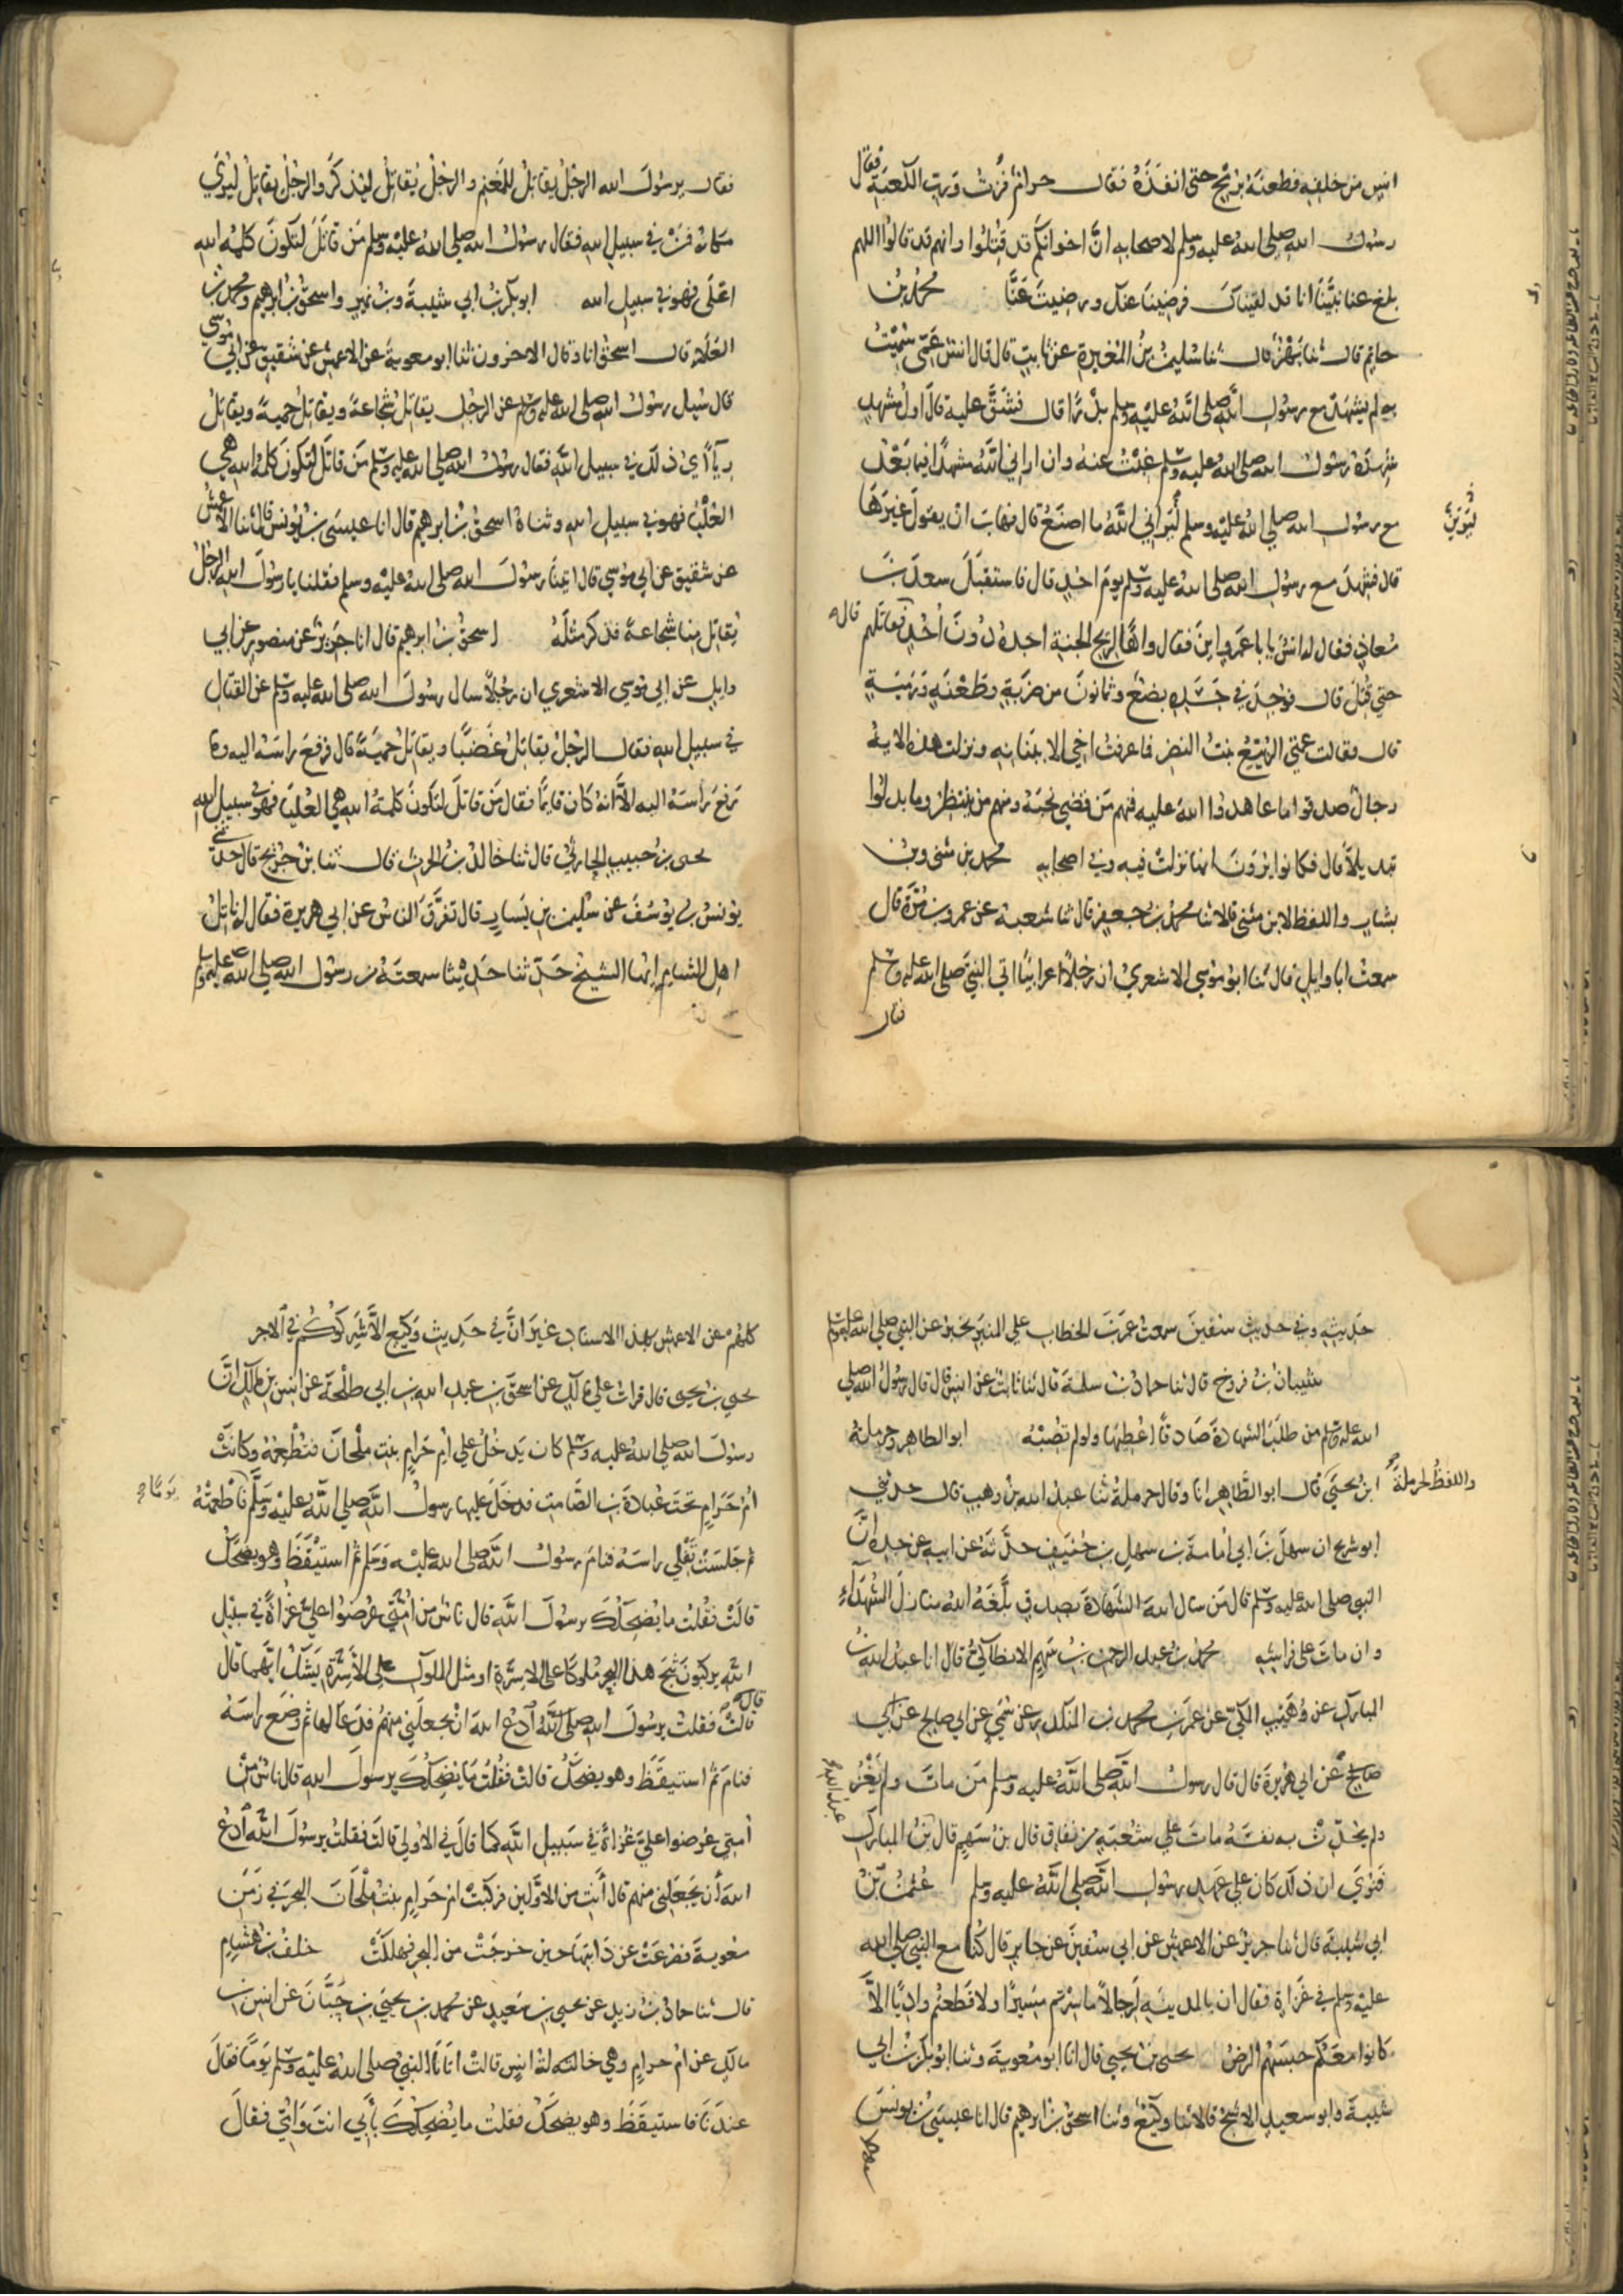 انس من خلفه فطعنه برمح حتى انفذه فقال حرام فزت ورب الكعبة فقال
رسول الله صلى الله عليه وسلم لاصحابه ان اخوانكم قد قتلوا وانهم قد قالوا اللهم
بلغ عنا نبينا انا قد لقيناك فرضينا عنك ورضيت عنا محمد بن
حاتم قال ثنا بهز قال ثنا سليمن بن المغيرة عن ثابت قال قال انس عمى سميت
به لم يشهد مع رسول الله صلى الله عليه وسلم بدرا قال فشق عليه قال اول مشهد
شهده رسول الله صلى الله عليه وسلم غبت عنه وان اراني الله مشهدا فيما بعد
مع رسول الله صلي الله عليه وسلم ليراني الله ما اصنع قال فهاب ان يقول غيرها
ليرين
قال فشهد مع رسول الله صلى الله عليه وسلم يوم احد قال فاستقبل سعد بن
معاذ فقال له انس يابا عمرو اين فقال واها لريح الجنة اجده دون احد فقاتلهم قال
حتي قتل قال فوجد في جسده بضع وثمانون من ضربة وطعنه ورمية
قال فقالت عمتي الربيع بنت النضر فما عرفت اخي الا ببنانه ونزلت هذه الاية
رجال صدقوا ما عاهدوا الله عليه فمنهم من قضي نحبه ومنهم من ينتظر وما بدلوا
تبديلا قال فكانوا يرون انها نزلت فيه وفي اصحابه محمد بن مثنى وبن
بشار واللفظ لابن مثنى قالا ثنا محمد بن جعفر قال ثنا شعبة عن عمرو بن مرة قال
سمعت ابا وايل قال ثنا ابو موسي الاشعري ان رجلا اعرابيا اتى النبي صلى الله عليه وسلم
فقال
فقال يرسول الله الرجل يقاتل للمغنم والرجل يقاتل ليذكر والرجل يقاتل ليرى
مكانه فمن في سبيل الله فقال رسول الله صلى الله عليه وسلم من قاتل لتكون كلمة الله
اعلى فهو في سبيل الله ابو بكر بن ابي شيبة وبن نمير واسحق بن ابرهيم ومحمد بن
العلاء قال اسحق انا وقال الاخرون ثنا ابو معوية عن الاعمش عن شقيق عن ابي موسي
قال سيل رسول الله صلى الله عليه وسلم عن الرجل يقاتل شجاعة ويقاتل حمية ويقاتل
رياء اي ذلك في سبيل الله فقال رسول الله صلى الله عليه وسلم من قاتل لتكون كلمة الله هي
العليا فهو في سبيل الله وثناه اسحق بن ابرهيم قال انا عيسى بن يونس قال ثنا الاعمش
عن شقيق عن ابي موسي قال اتينا رسول الله صلى الله عليه وسلم فقلنا يا رسول الله الرجل
يقاتل منا شجاعة فذكر مثله اسحق بن ابرهيم قال انا جرير عن منصور عن ابي
وايل عن ابي موسي الاشعري ان رجلا سال رسول الله صلى الله عليه وسلم عن القتال
في سبيل الله فقال الرجل يقاتل غضبا ويقاتل حمية قال فرفع راسه اليه وما
رفع راسه اليه الا انه كان قايما فقال من قاتل لتكون كلمة الله هي العليا فهو في سبيل الله
يحيى بن حبيب الحارثي قال ثنا خالد بن الحرث قال ثنا بن جريج قال حدثني
يونس بن يوسف عن سليمن بن يسار قال تفرق الناس عن ابي هريرة فقال له ناتل
اهل الشام ايها الشيخ حدثنا حديثا سمعته من رسول الله صلي الله عليه وسلم
حديثه وفي حديث سفين سمعت عمر بن الخطاب علي المنبر يخبر عن النبي صلي الله عليه وسلم
شيبان بن فروخ قال ثنا حماد بن سلمة قال ثنا ثابت عن انس قال قال رسول الله صلي
الله عليه وسلم من طلب الشهادة صادقا اعطيها ولو لم تصبه ابو الطاهر وحرملة
ابن يحيى قال ابو الطاهر انا وقال حرملة ثنا عبد الله بن وهب قال حدثني
واللفظ لحرملة
ابو شريح ان سهل بن ابي امامة بن سهل بن حنيف حدثه عن ابيه عن جده ان
النبي صلى الله عليه وسلم قال من سال الله الشهادة بصدق بلغه الله منازل الشهداء
وان مات على فراشه محمد بن عبد الرحمن بن سهم الانطاكي قال انا عبد الله بن
المبارك عن وهيب المكي عن عمر بن محمد بن المنكدر عن سمي عن ابي صالح عن ابي
صالح عن ابي هريرة قال قال رسول الله صلى الله عليه وسلم من مات ولم يغز
ولم يحدث به نفسه مات علي شعبه من نفاق قال بن سهم قال بن المبارك
عبد الله
فنرى ان ذلك كان علي عهد رسول الله صلي الله عليه وسلم عثمن بن
ابي شيبة قال ثنا جرير عن الاعمش عن ابي سفين عن جابر قال كنا مع النبي صلي الله
عليه وسلم في غزاة فقال ان بالمدينه لرجالا ما سرتم مسيرا ولا قطعتم واديا الا
كانوا معكم حبسهم المرض يحيى بن يحيى قال انا ابو معوية وثنا ابو بكر بن ابي
شيبة وابو سعيد الاشج قالا ثنا وكيع وثنا اسحق بن ابرهيم قال انا عيسى بن يونس
كلهم
كلهم عن الاعمش بهذا الاسناد غير ان في حديث وكيع الا شركوكم في الاجر
يحيى بن يحيى قال قرات علي مالك عن اسحق بن عبد الله بن ابي طلحة عن انس بن مالك ان
رسول الله صلي الله عليه وسلم كان يدخل علي ام حرام بنت ملحان فتطعمه وكانت
ام حرام تحت عبادة بن الصامت فدخل عليها رسول الله صلي الله عليه وسلم فاطعمته
يوما
ثم جلست تفلي راسه فنام رسول الله صلى الله عليه وسلم ثم استيقظ وهو يضحك
قالت فقلت ما يضحكك يرسول الله قال ناس من امتي عرضوا علي غزاة في سبيل
الله يركبون ثبج هذا البحر ملوكا على الاسرة او مثل الملوك على الاسرة يشك ايهما قال
قال
قالت فقلت يرسول الله صلى الله ادع الله ان يجعلني منهم فدعا لها ثم وضع راسه
فنام ثم استيقظ وهو يضحك قالت فقلت ما يضحكك يرسول الله قال ناس من
امتي عرضوا علي غزاة في سبيل الله كما قال في الاولي قالت فقلت يرسول الله ادع
الله ان يجعلني منهم قال انت من الاولين فركبت ام حرام بنت ملحان البحر في زمن
معوية فصرعت عن دابتها حين خرجت من البحر فهلكت خلف بن هشام
قال ثنا حماد بن زيد عن يحيى بن سعيد عن محمد بن يحيى بن حبان عن انس بن
مالك عن ام حرام وهي خالته لانس قالت اتانا النبي صلى الله عليه وسلم يوما فقال
عندنا فاستيقظ وهو يضحك فقلت ما يضحكك بابي انت وامي فقال